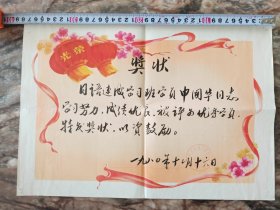 光荣
奖状
日语速成学习班学员申国华同志
学习努力，成绩优良，被评为优秀学员，
特发奖状，以资鼓励。
一九八〇年十月十六日